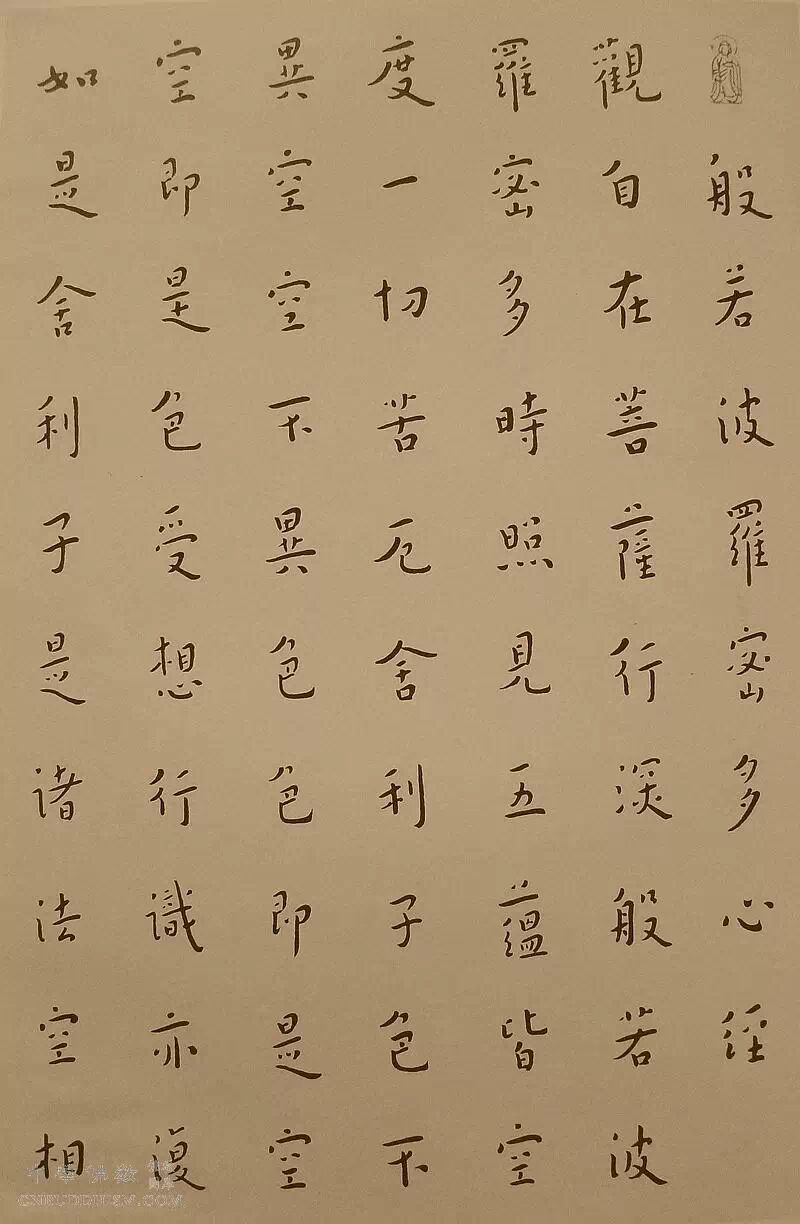 般若波羅密多心經
觀自在菩薩行深般若波
羅密多時照見五蘊皆空
度一切苦厄舍利子色不
異空空不異色色即是空
空即是色受想行識亦復
如是舍利子是諸法空相